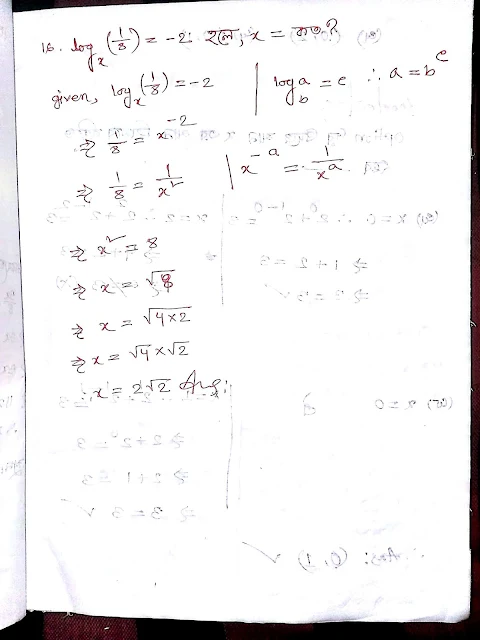 16. log_x (1/8) = -2 হলে, x = কত?
given, log_x (1/8) = -2 | log_b a = e ∴ a = b^e
⇒ 1/8 = x^-2
⇒ 1/8 = 1/x² | x^-a = 1/x^a
⇒ x² = 8
⇒ x = √8
⇒ x = √4×2
⇒ x = √4 × √2
∴ x = 2√2 Ans: